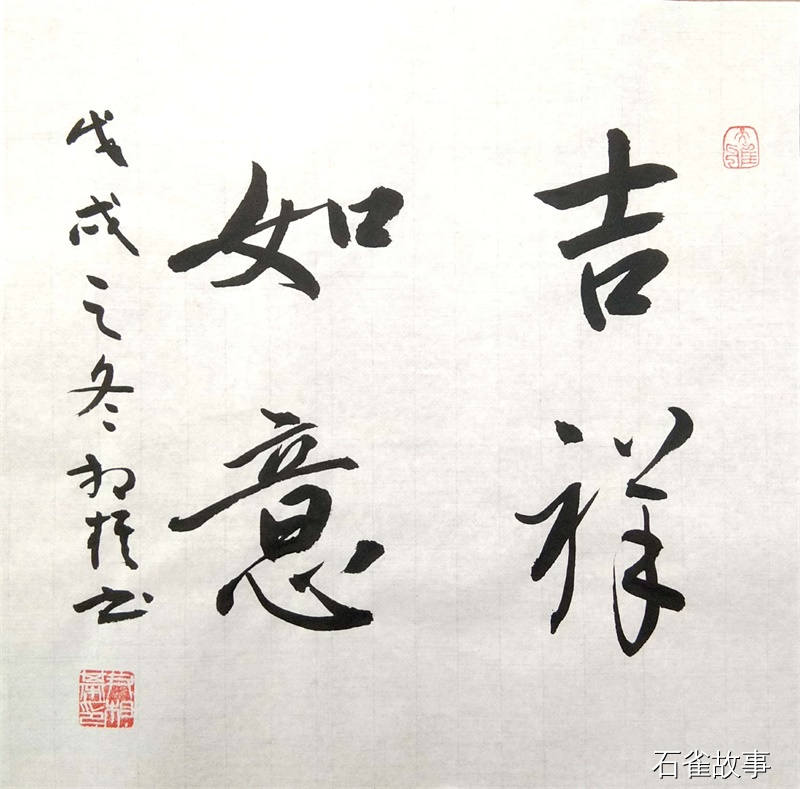 吉祥
如意
戊戌之冬
书
石雀故事